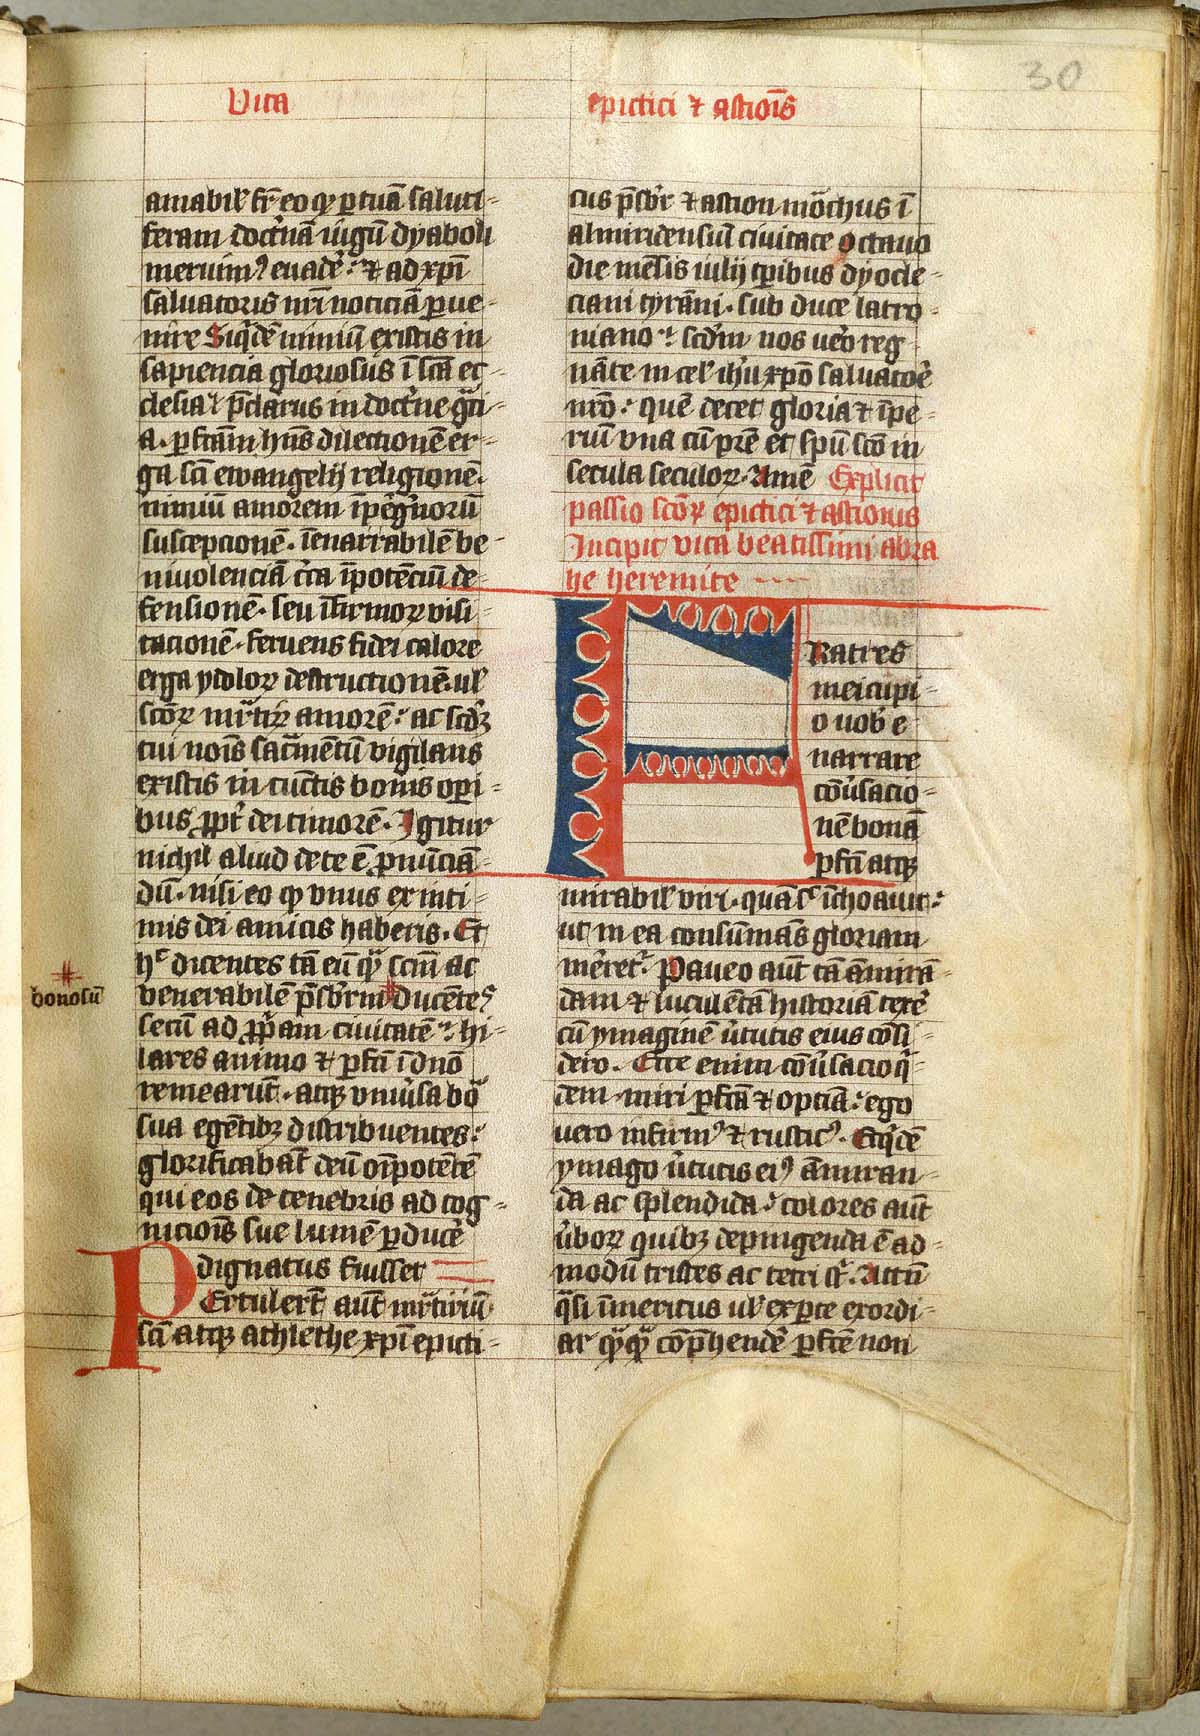 30
Vita
epicteti ⁊ astiōis
amabiłꝭ fr̄ eo ꝙ ꝑ tuā saluti⸗
feram doctͥnā iugū dyaboli
meruimꝰ euadẽ. ⁊ ad xp̄i
saluatoris nr̄i noticiā ꝑue⸗
nire Siqͥdē nimiū existis in
sapiencia gloriosus ī scā ec⸗
clesia ⁊ p̄clarus in doctͥne gͣci
a. ꝑfectam hn̄s dilectionē er⸗
ga scī ewangelij religionē.
nimiū amorem ī pegͥnorū
suscepcionē. īenarrabilē be⸗
niuolenciā cͥca īpotēciū de⸗
fensionē. seu īfirmoꝝ visi
tacionē. feruens fidei calore
erga ydoloꝝ destructionē. uł
scōꝝ mͬtiꝝ amorē. ac scd̄ꝫ
tui nōis sacͣmentū vigilans
existis in cūctis bonis oꝑi⸗
bus ꝓpt̄ dei timorē. Igitur
nichil aliud de te ē ꝓnūciā⸗
dū. nisi eo ꝙ vnus ex inti⸗
mis dei amicis haberis. Et
hͨ dicentes tā eū qͣꝫ scm̄ ac
venerabilē p̄sbr̄m ducētes
bonosū
secū ad ꝓpͥam ciuitatē. hi⸗
lares animo ⁊ ꝑfcī ī dn̄o
remearūt. atqꝫ vniūsa boͣ
sua egētibꝫ distribuentes.
glorificabāt deū oīpotētē
qui eos de tenebris ad cog⸗
nicionē sue lumē ꝑducē
dignatus fuisset
PErtulert̄ aut̄ mͬtiriū
scī atqꝫ athlethe xp̄i epicti⸗
cus p̄sbr̄ ⁊ astion mōchus ī
almiridensiū ciuitate octauo
die mēsis iulij tp̄ibus dyocle⸗
ciani tyrāni. sub duce latro⸗
niano. scd̄m nos uēo reg⸗
nāte in cel̄ ihū xp̄o saluatoē
nrō. quē decet gloria ⁊ īpe⸗
riū vna cū pr̄e et spū scō in
secula seculoꝝ. Amē Explicit
passio scōꝝ epictici ⁊ astionis
Incipit vita beatissimi abra
he heremite
FRatres
mei cupi⸗
o uob̄ e⸗
narrare
cōūsacio⸗
nē bonā
ꝑfcī atqꝫ
mirabił viri. quā ⁊ īchoauit.
ut in ea consūmās gloriam
mēret. Paueo aut̄ tā āmirā⸗
dam ⁊ luculētā historiā texē
cū ymaginē ūtutis eius cōsi⸗
dero. Ecce enim cōūsacio qͥ⸗
dem miri ꝑfcā ⁊ optīa. ego
vero infirmꝰ ⁊ rusticꝰ. Etqͥdē
ymago ūtutis eiꝰ āmiran⸗
da ac splendida. colores aut̄
ūboꝝ quibꝫ depingenda ē ad⸗
modū tristes ac tetri st̄. Attn̄
qͣsi īmeritus uł ex ꝑte exordi⸗
ar qͣꝫqͣꝫ cōp̄hendē ꝑfcē non